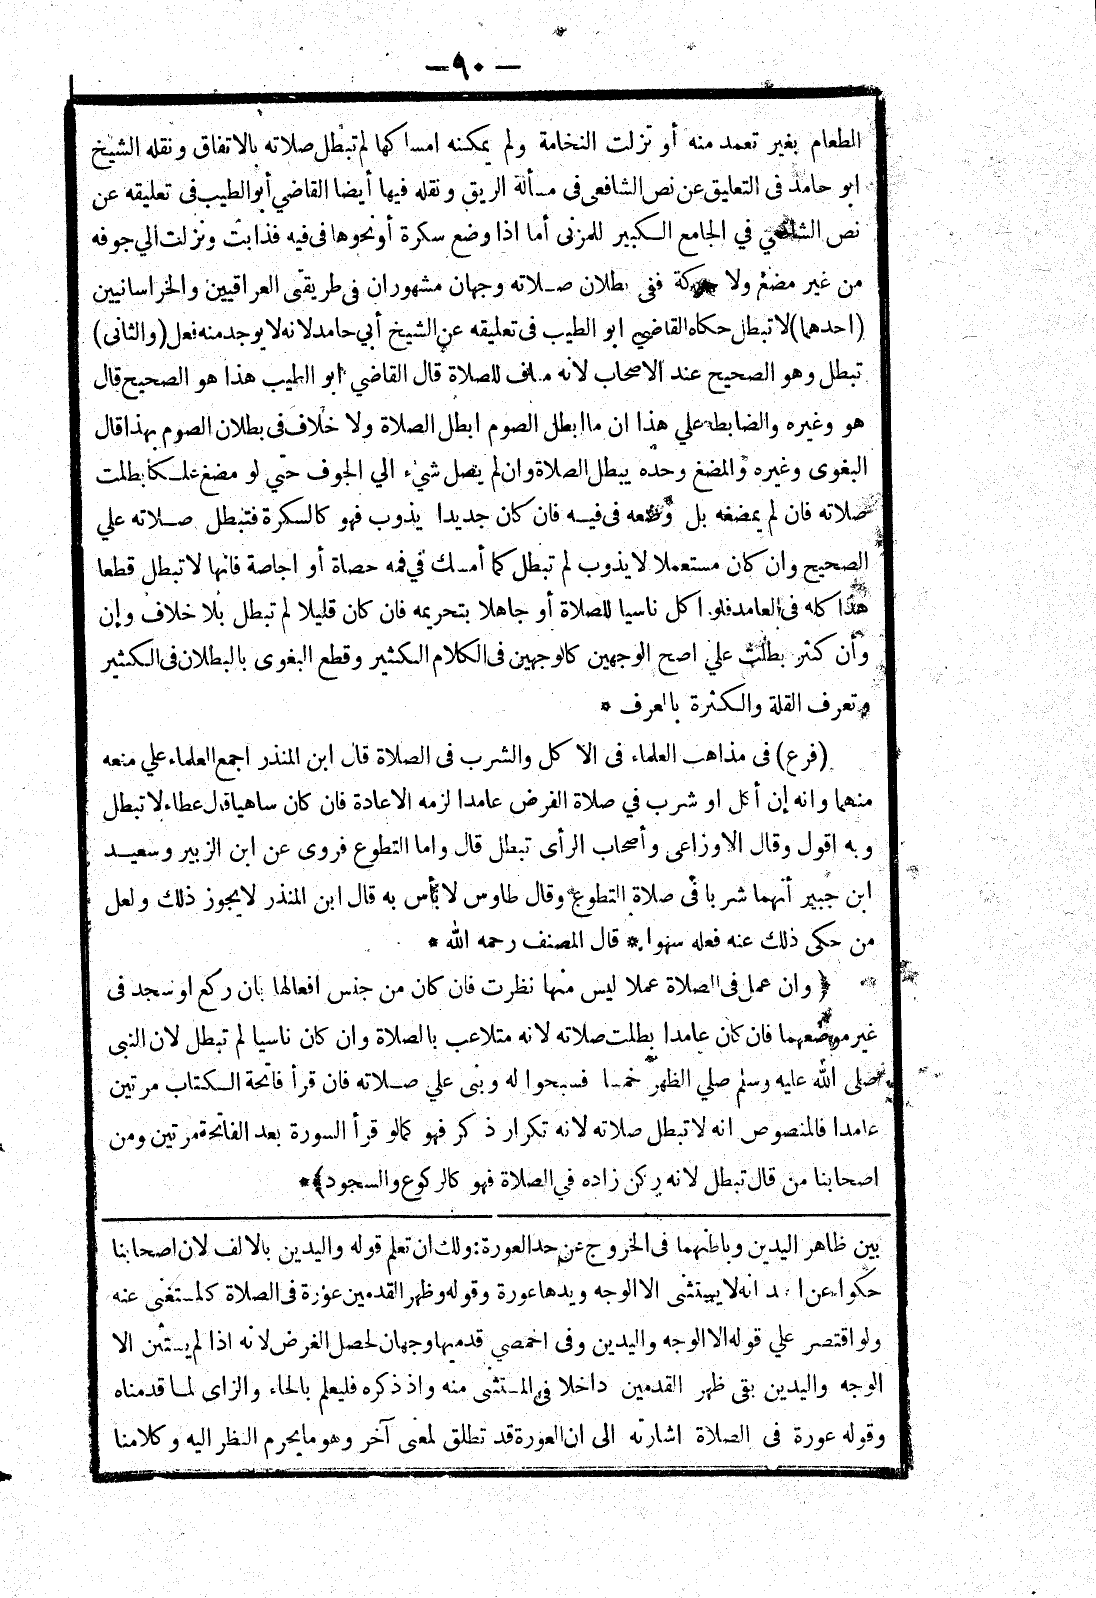 — ٩٠ —
الطعام بغير تعمد منه أو نزلت النخامة ولم يمكنه امساكها لم تبطل صلاته بالاتفاق ونقله الشيخ
ابو حامد فى التعليق عن نص الشافعى فى مسألة الريق ونقله فيها أيضا القاضي أبو الطيب فى تعليقه عن
نص الشافعي في الجامع الكبير للمزنى أما اذا وضع سكرة أو نحوها فى فيه فذابت ونزلت الي جوفه
من غير مضغ ولا حركة ففى بطلان صلاته وجهان مشهوران فى طريقتى العراقيين والخراسانيين
(احدهما) لا تبطل حكاه القاضي ابو الطيب فى تعليقه عن الشيخ أبي حامد لانه لا يوجد منه فعل (والثانى)
تبطل وهو الصحيح عند الاصحاب لانه مناف للصلاة قال القاضي ابو الطيب هذا هو الصحيح قال
هو وغيره والضابط علي هذا ان ما ابطل الصوم ابطل الصلاة ولا خلاف فى بطلان الصوم بهذا قال
البغوى وغيره والمضغ وحده يبطل الصلاة وان لم يصل شيء الي الجوف حتي لو مضغ علكا بطلت
صلاته فان لم يمضغه بل وضعه فى فيه فان كان جديدا يذوب فهو كالسكرة فتبطل صلاته علي
الصحيح وان كان مستعملا لا يذوب لم تبطل كما أمسك في فمه حصاة أو اجاصة فانها لا تبطل قطعا
هذا كله فى العامد فلو اكل ناسيا للصلاة أو جاهلا بتحريمه فان كان قليلا لم تبطل بلا خلاف وإن
وأن كثر بطلت علي اصح الوجهين كالوجهين فى الكلام الكثير وقطع البغوى بالبطلان فى الكثير
وتعرف القلة والكثرة بالعرف *
(فرع) فى مذاهب العلماء فى الاكل والشرب فى الصلاة قال ابن المنذر اجمع العلماء علي منعه
منهما وانه إن أكل او شرب في صلاة الفرض عامدا لزمه الاعادة فان كان ساهيا قال عطاء لا تبطل
وبه اقول وقال الاوزاعى وأصحاب الرأى تبطل قال واما التطوع فروى عن ابن الزبير وسعيد
ابن جبير أنهما شربا فى صلاة التطوع وقال طاوس لا بأس به قال ابن المنذر لا يجوز ذلك ولعل
من حكى ذلك عنه فعله سهوا * قال المصنف رحمه الله *
﴿ وان عمل فى الصلاة عملا ليس منها نظرت فان كان من جنس افعالها بان ركع او سجد فى
غير موضعهما فان كان عامدا بطلت صلاته لانه متلاعب بالصلاة وان كان ناسيا لم تبطل لان النبى
صلى الله عليه وسلم صلي الظهر خمسا فسبحوا له وبنى علي صلاته فان قرأ فاتحة الكتاب مرتين
عامدا فالمنصوص انه لا تبطل صلاته لانه تكرار ذكر فهو كما لو قرأ السورة بعد الفاتحة مرتين ومن
اصحابنا من قال تبطل لانه ركن زاده في الصلاة فهو كالركوع والسجود ﴾ *
بين ظاهر اليدين وباطنهما فى الخروج عن حد العورة : ولك ان تعلم قوله واليدين بالالف لان اصحابنا
حكوا عن احمد انه لا يستثنى الا الوجه ويدها عورة وقوله وظهر القدمين عورة فى الصلاة كالمستغنى عنه
ولو اقتصر علي قوله الا الوجه واليدين وفى اخمصي قدميها وجهان لحصل الغرض لانه اذا لم يستثن الا
الوجه واليدين بقى ظهر القدمين داخلا فى المستثنى منه واذ ذكره فليعلم بالحاء والزاى لما قدمناه
وقوله عورة فى الصلاة اشارته الى ان العورة قد تطلق لمعنى آخر وهو ما يحرم النظر اليه وكلامنا